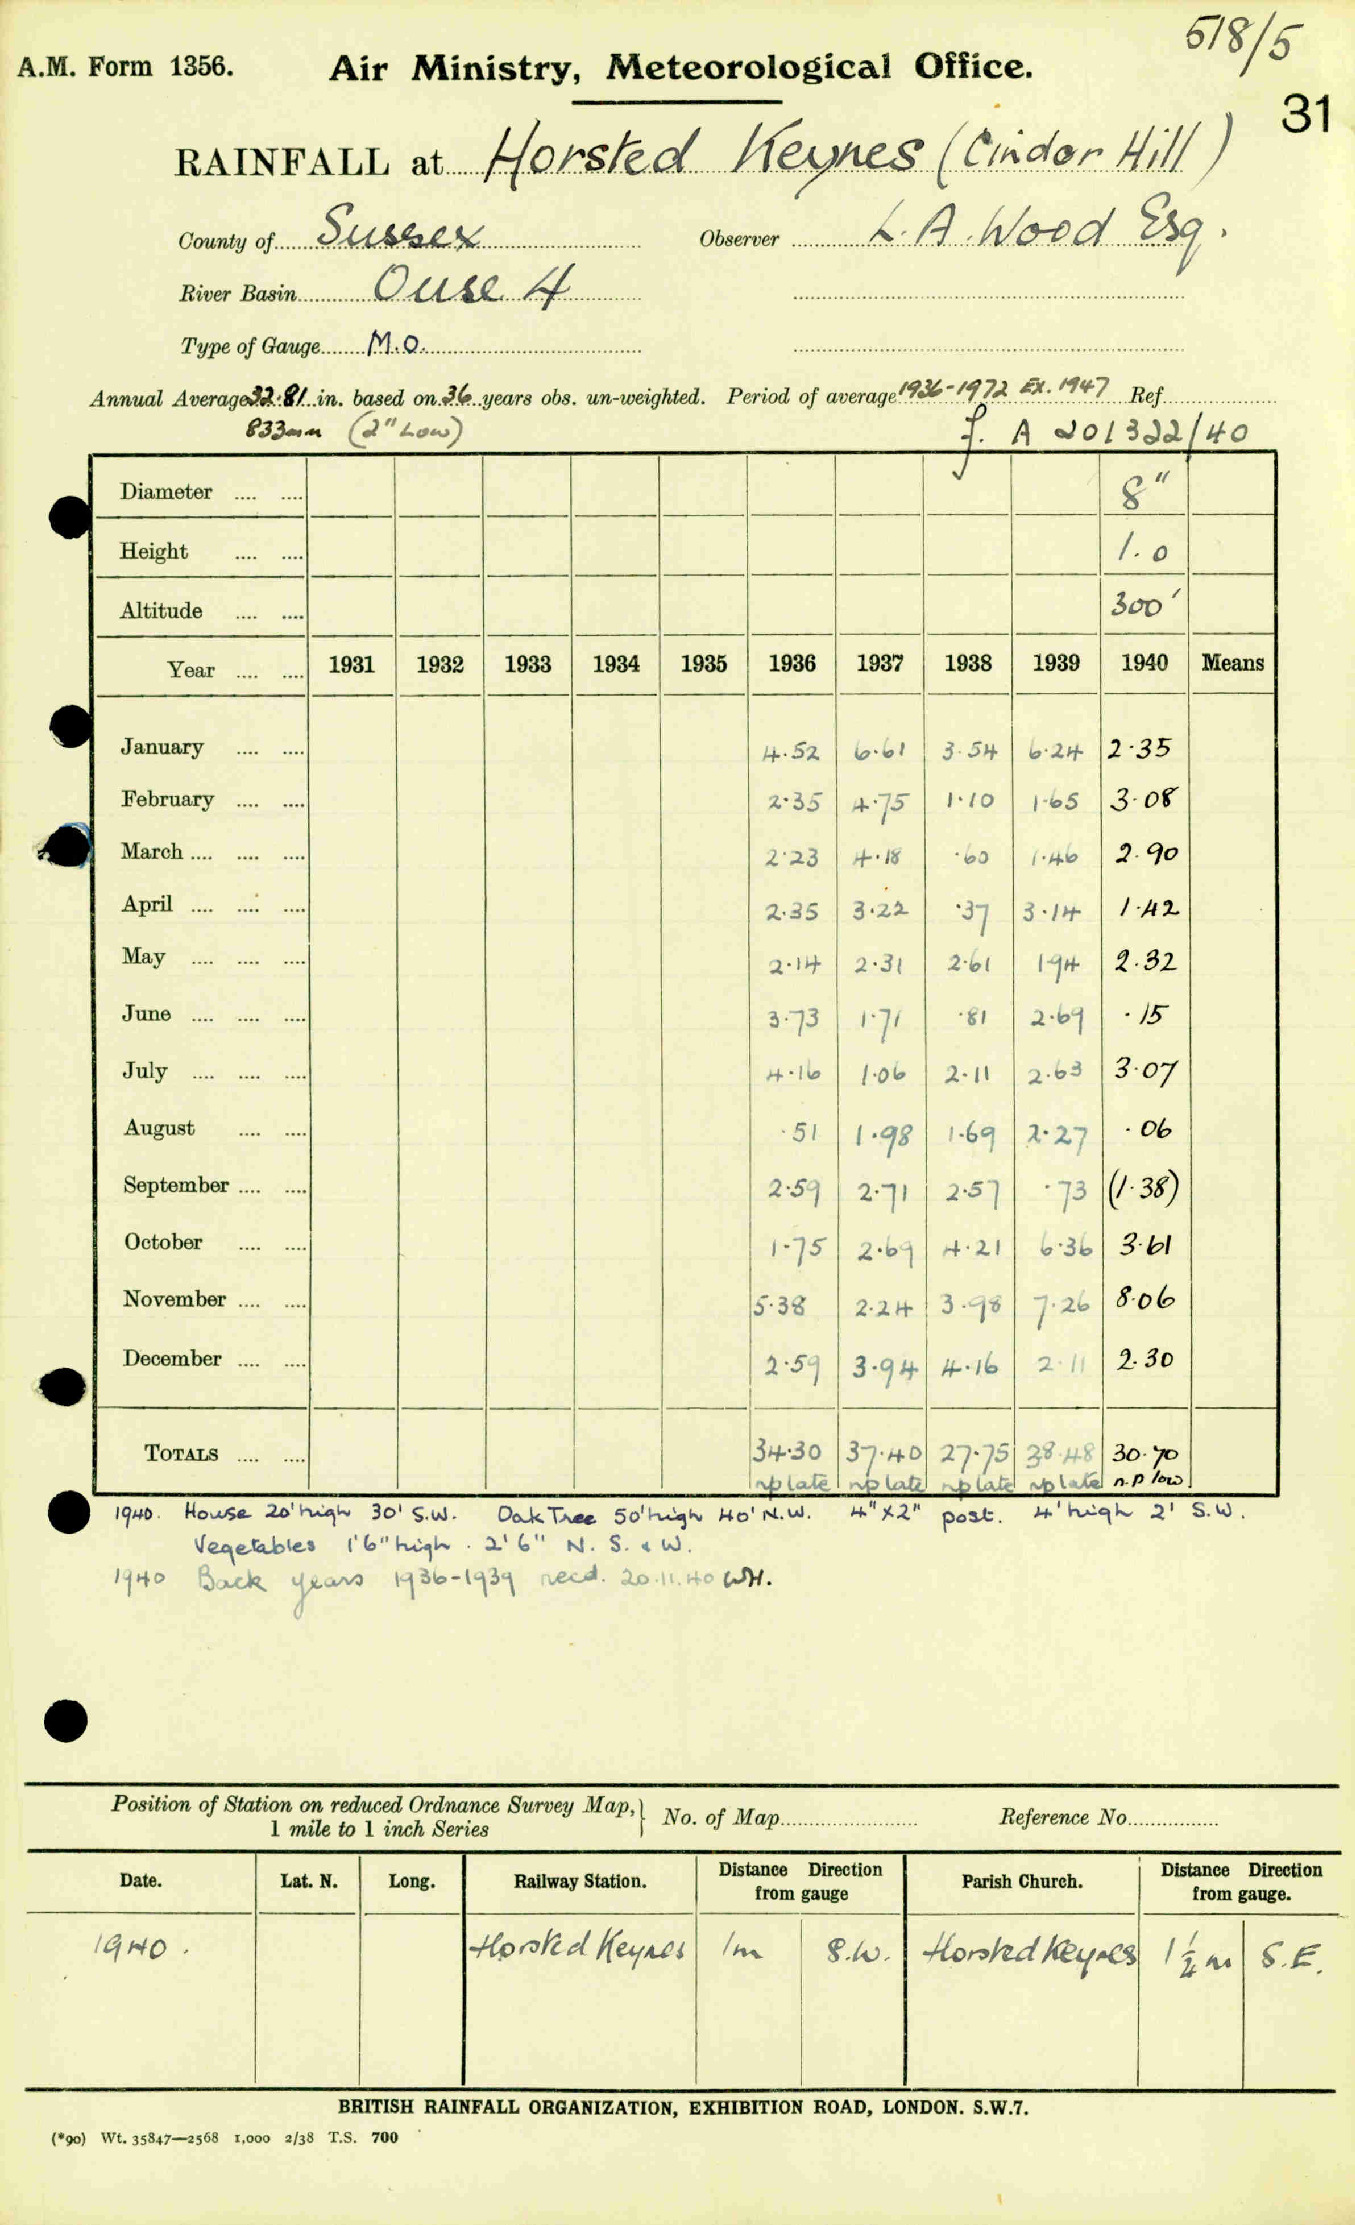 518/5
A.M. Form 1356. Air Ministry, Meteorological Office.
31
RAINFALL at Horsted Keynes (Cinder Hill)
County of Sussex Observer L.A. Wood Esq.
River Basin Ouse 4
Type of Gauge M.O.
Annual Average 32.81 in. based on 36 years obs. un-weighted. Period of average 1936-1972 EX. 1947 Ref.
833mm (2" Low) f. A 201322/40
Diameter .... .... 8"
Height .... .... 1.0
Altitude .... .... 300'
Year .... .... 1931 1932 1933 1934 1935 1936 1937 1938 1939 1940 Means
January .... .... 4.52 6.61 3.54 6.24 2.35
February .... .... 2.35 4.75 1.10 1.65 3.08
March .... .... .... 2.23 4.18 .60 1.46 2.90
April .... .... .... 2.35 3.22 .37 3.14 1.42
May .... .... .... 2.14 2.31 2.61 1 94 2.32
June .... .... .... 3.73 1.71 .81 2.69 .15
July .... .... .... 4.16 1.06 2.11 2.63 3.07
August .... .... .51 1.98 1.69 2.27 .06
September .... .... 2.59 2.71 2.57 .73 (1.38)
October .... .... 1.75 2.69 4.21 6.36 3.61
November .... .... 5.38 2.24 3.98 7.26 8.06
December .... .... 2.59 3.94 4.16 2.11 2.30
TOTALS .... .... 34.30 37.40 27.75 38.48 30.70
np late np late np late np late n.p low.
1940. House 20' high 30' S.W. Oak Tree 50' high 40' N.W. 4" x 2" post. 4' high 2' S.W.
Vegetables 1'6" high. 2'6" N. S. & W.
1940 Back years 1936-1939 recd. 20.11.40 WH.
Position of Station on reduced Ordnance Survey Map, } No. of Map Reference No.
1 mile to 1 inch Series
Date. Lat. N. Long. Railway Station. Distance Direction from gauge Parish Church. Distance Direction from gauge.
1940. Horsted Keynes 1m S.W. Horsted Keynes 1¼ m S.E.
BRITISH RAINFALL ORGANIZATION, EXHIBITION ROAD, LONDON. S.W.7.
(*90) Wt. 35847—2568 1,000 2/38 T.S. 700